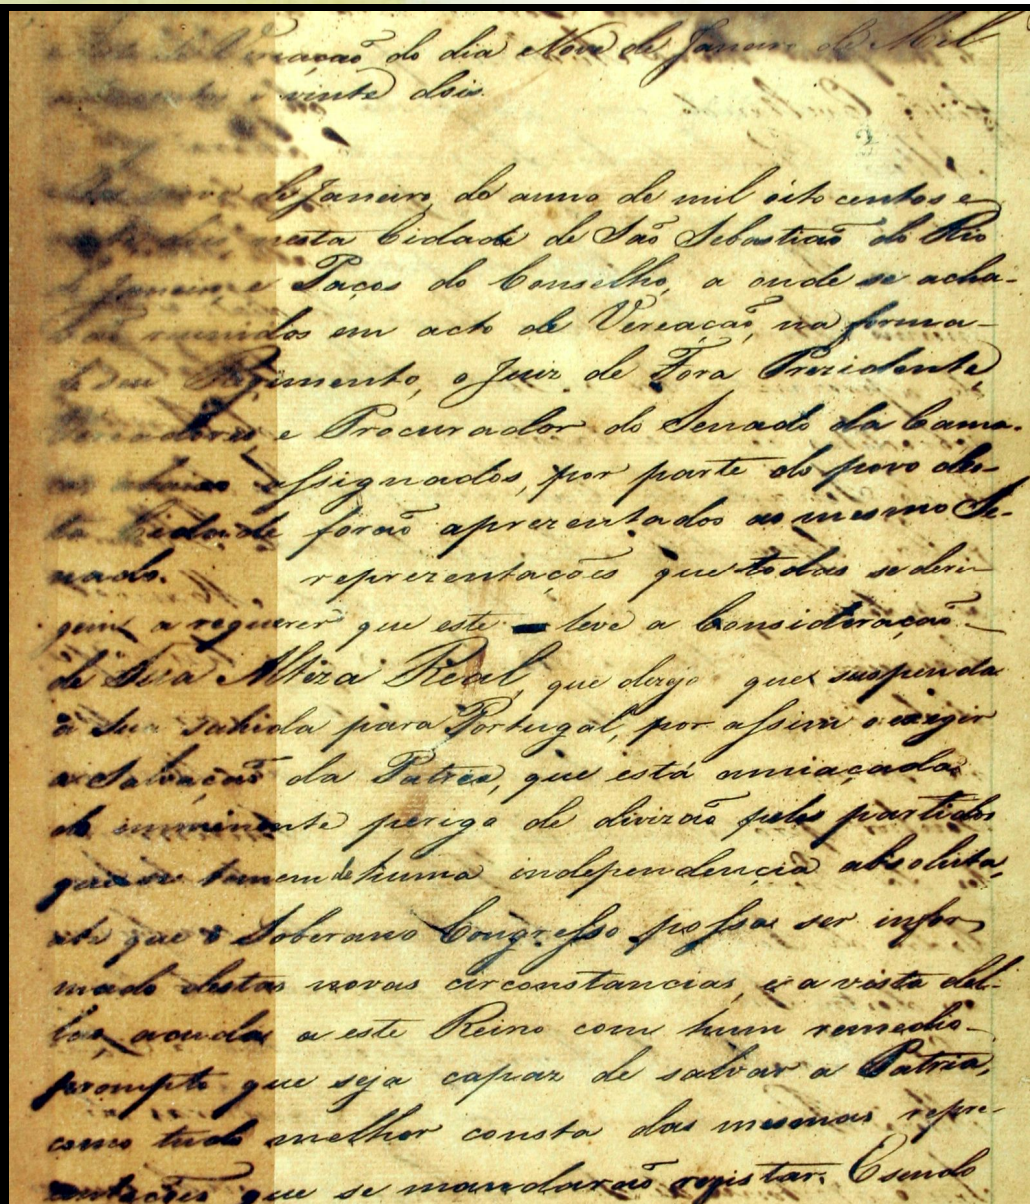 Vereação do dia Nove de Janeiro de Mil
e vinte dois
de Janeiro do anno de mil oito centos e
nesta Cidade de São Sebastião do Rio
de Janeiro e Paços do Conselho, a onde se acha-
vão reunidos em acto de Vereação, na forma
de seu Regimento, o Juiz de Fora Prezidente
Vereadores e Procurador do Senado da Cama-
ra abaixo assignados, por parte do povo des-
ta Cidade forão aprezentados ao mesmo Se-
nado. reprezentações que todas se deri-
gem a requerer que este leve a Consideração
de Sua Alteza Real, que dezeja que suspenda
a sua sahida para Portugal, por assim o exegir
a Salvação da Patria, que está amiaçada
do imminente perigo de divizão pelos partidos
que se temem de huma independencia absoluta,
até que o Soberano Congresso possa ser infor
mado destas novas circonstancias, e a vista del-
las acuda a este Reino com hum remedio
prompto que seja capaz de salvar a Patria,
como tudo melhor consta das mesmas repre-
zentações que se mandarão registar. E sendo